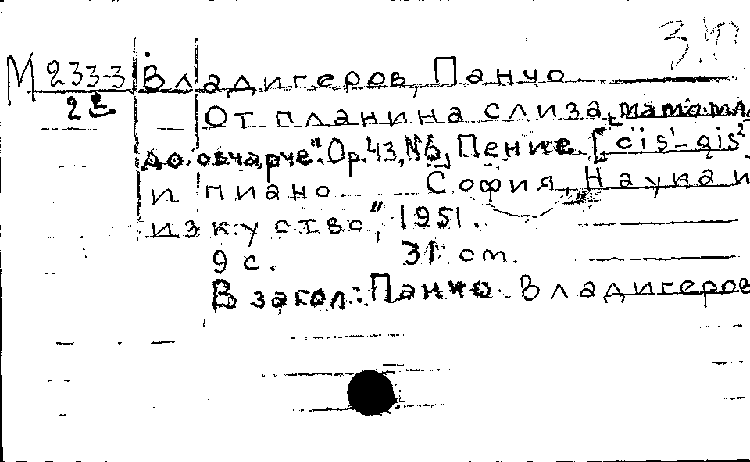 М 233-3 Владигеров, Панчо
От планина слиза, мама мл
до овчарче". Ор. 43, №6, Пение [cis¹-gis²
и пиано. София, Наука и
изкуство", 1951.
9 с. 31 cm.
В загол.: Панчо Владигеров